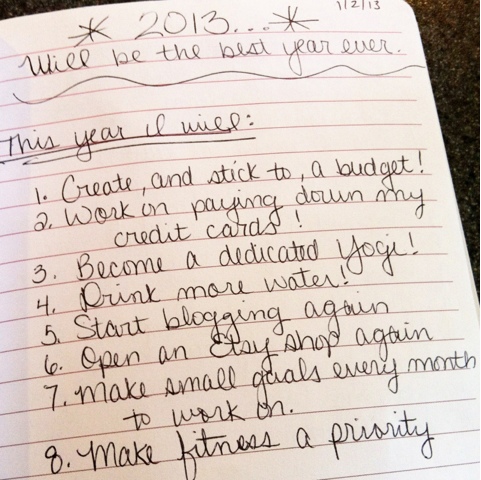 1/2/13
* 2013...*
Will be the best year ever.
This year I will:
1. Create, and stick to, a budget!
2. Work on paying down my
credit cards!
3. Become a dedicated Yogi!
4. Drink more water!
5. Start blogging again
6. Open an Etsy shop again
7. Make small goals every month
to work on.
8. Make fitness a priority